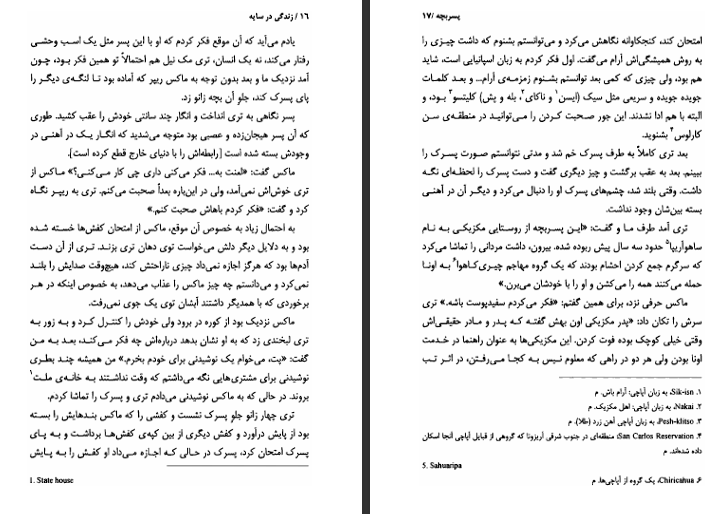 ۱۶ / زندگی در سایه
یادم می‌آید که آن موقع فکر کردم که او با این پسر مثل یک اسب وحشی
رفتار می‌کند، نه یک انسان، تری مک نیل هم احتمالاً تو همین فکر بود، چون
آمد نزدیک ما و بعد بدون توجه به ماکس ریپر که آماده بود تا لنگه‌ی دیگر را
پای پسرک کند، جلو آن بچه زانو زد.
پسر نگاهی به تری انداخت و انگار چند سانتی خودش را عقب کشید. طوری
که آن پسر هیجان‌زده و عصبی بود متوجه می‌شدید که انگار یک در آهنی در
وجودش بسته شده است [رابطه‌اش را با دنیای خارج قطع کرده است].
ماکس گفت: «لعنت به... فکر می‌کنی داری چی کار می‌کنی؟» ماکس از
تری خوش‌اش نمی‌آمد، ولی در این‌باره بعداً صحبت می‌کنم. تری به ریپر نگاه
کرد و گفت: «فکر کردم باهاش صحبت کنم.»
به احتمال زیاد به خصوص آن موقع، ماکس از امتحان کفش‌ها خسته شده
بود و به دلایل دیگر دلش می‌خواست توی دهان تری بزند. تری از آن دست
آدم‌ها بود که هرگز اجازه نمی‌داد چیزی ناراحتش کند، هیچ‌وقت صدایش را بلند
نمی‌کرد و می‌دانستم چه چیز ماکس را عذاب می‌دهد، به خصوص اینکه در هر
برخوردی که با همدیگر داشتند آبشان توی یک جوی نمی‌رفت.
ماکس نزدیک بود از کوره در برود ولی خودش را کنترل کرد و به زور به
تری لبخندی زد که به او نشان بدهد درباره‌اش چه فکر می‌کند، بعد به من
گفت: «پت، می‌خوام یک نوشیدنی برای خودم بخرم.» من همیشه چند بطری
نوشیدنی برای مشتری‌هایی نگه می‌داشتم که وقت نداشتند به خانه‌ی ملت۱
بروند. در حالی که به ماکس نوشیدنی می‌دادم تری و پسرک را تماشا کردم.
تری چهار زانو جلو پسرک نشست و کفشی را که ماکس بندهایش را بسته
بود از پایش درآورد و کفش دیگری از بین کپه‌ی کفش‌ها برداشت و به پای
پسرک امتحان کرد، پسرک در حالی‌که اجازه می‌داد او کفش را به پایش
1. State house
پسربچه /۱۷
امتحان کند، کنجکاوانه نگاهش می‌کرد و می‌توانستم بشنوم که داشت چیزی را
به روش همیشگی‌اش آرام می‌گفت. اول فکر کردم به زبان اسپانیایی است، شاید
هم بود، ولی چیزی که کمی بعد توانستم بشنوم زمزمه‌ی آرام... و بعد کلمات
جویده جویده و سریعی مثل سیک (ایسن۱ و ناکای۲، بله و پش) کلیتسو۳ بود، و
البته با هم ادا نشدند. این جور صحبت کردن را می‌توانید در منطقه‌ی سن
کارلوس۴ بشنوید.
بعد تری کاملاً به طرف پسرک خم شد و مدتی نتوانستم صورت پسرک را
ببینم. بعد به عقب برگشت و چیز دیگری گفت و دست پسرک را لحظه‌ای نگه
داشت. وقتی بلند شد، چشم‌های پسرک او را دنبال می‌کرد و دیگر آن در آهنی
بسته بین‌شان وجود نداشت.
تری آمد طرف ما و گفت: «این پسربچه از روستایی مکزیکی به نام
ساهوآریپا۵ حدود سه سال پیش ربوده شده. بیرون، داشت مردانی را تماشا می‌کرد
که سرگرم جمع کردن احشام بودند که یک گروه مهاجم چیری‌کاهوا۶ به اونا
حمله می‌کنند همه را می‌کشن و او را با خودشان می‌برن.»
ماکس حرفی نزد، برای همین گفتم: «فکر می‌کردم سفیدپوست باشه.» تری
سرش را تکان داد: «پدر مکزیکی اون بهش گفته که پدر و مادر حقیقی‌اش
وقتی خیلی کوچک بوده فوت کردن. این مکزیکی‌ها به عنوان راهنما در خدمت
اونا بودن ولی هر دو در راهی که معلوم نیس به کجا می‌رفتن، در اثر تب
۱. Sik-isn، به زبان آپاچی: آرام باش. م
۲. Nakai، به زبان آپاچی: اهل مکزیک. م
۳. Pesh-klitso، به زبان آپاچی آهن زرد (طلا). م
۴. San Carlos Reservation، منطقه‌ای در جنوب شرقی آریزونا که گروهی از قبایل آپاچی آنجا اسکان
داده شده‌اند. م
5. Sahuaripa
۶. Chiricahua، یک گروه از آپاچی‌ها. م